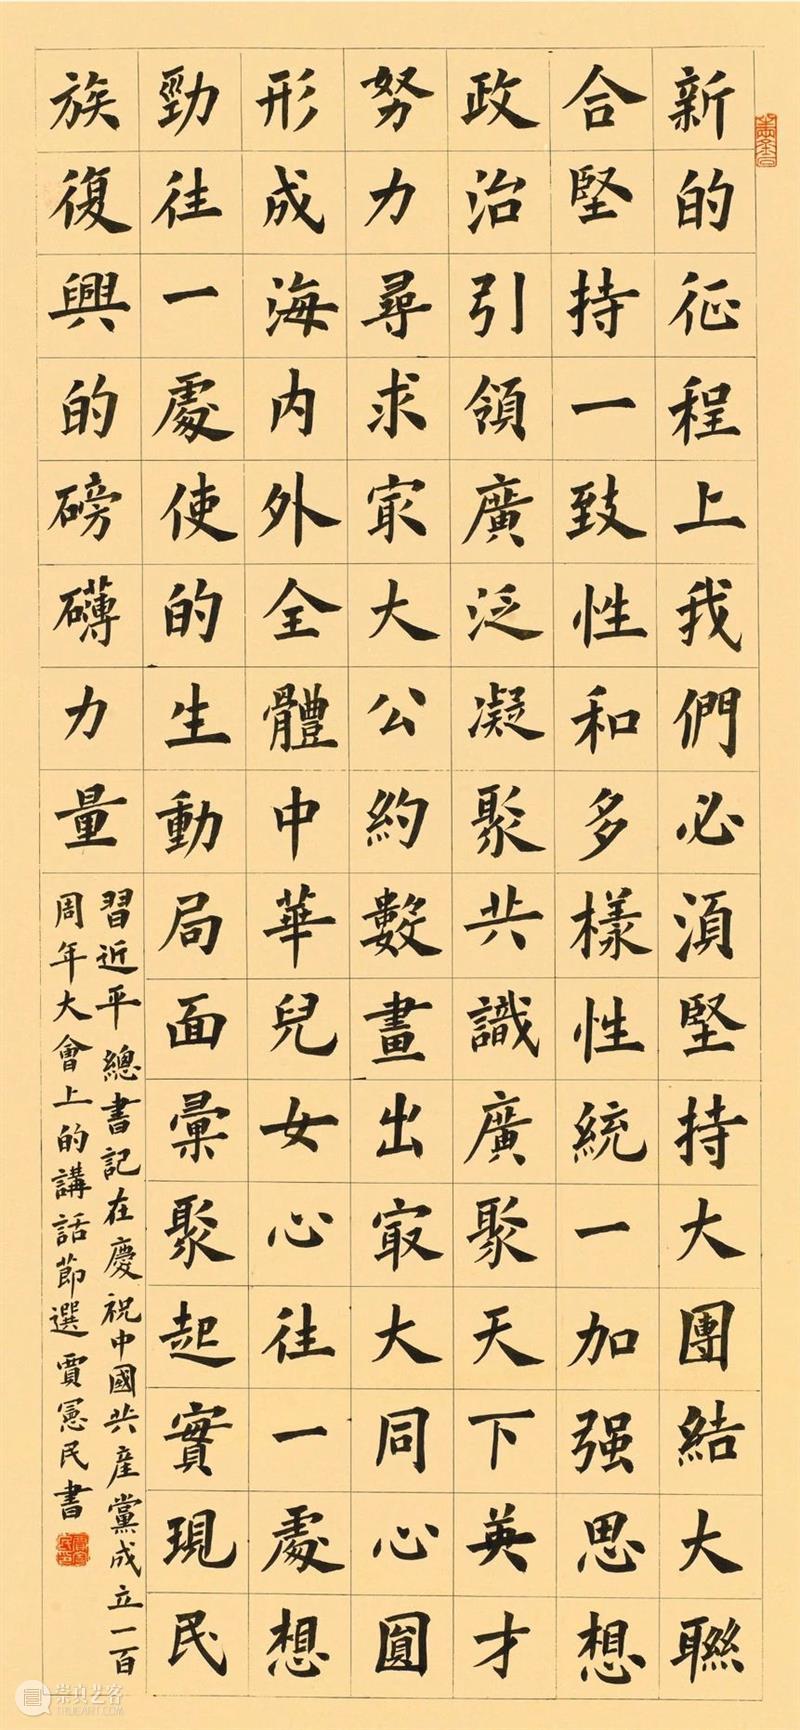 新的征程上我們必須堅持大團結大聯
合堅持一致性和多樣性統一加强思想
政治引領廣泛凝聚共識廣聚天下英才
努力尋求冣大公約數畫出冣大同心圓
形成海内外全體中華兒女心往一處想
勁往一處使的生動局面彙聚起實現民
族復興的磅礴力量
習近平總書記在慶祝中國共産黨成立一百
周年大會上的講話節選 賈憲民書
崇真艺客